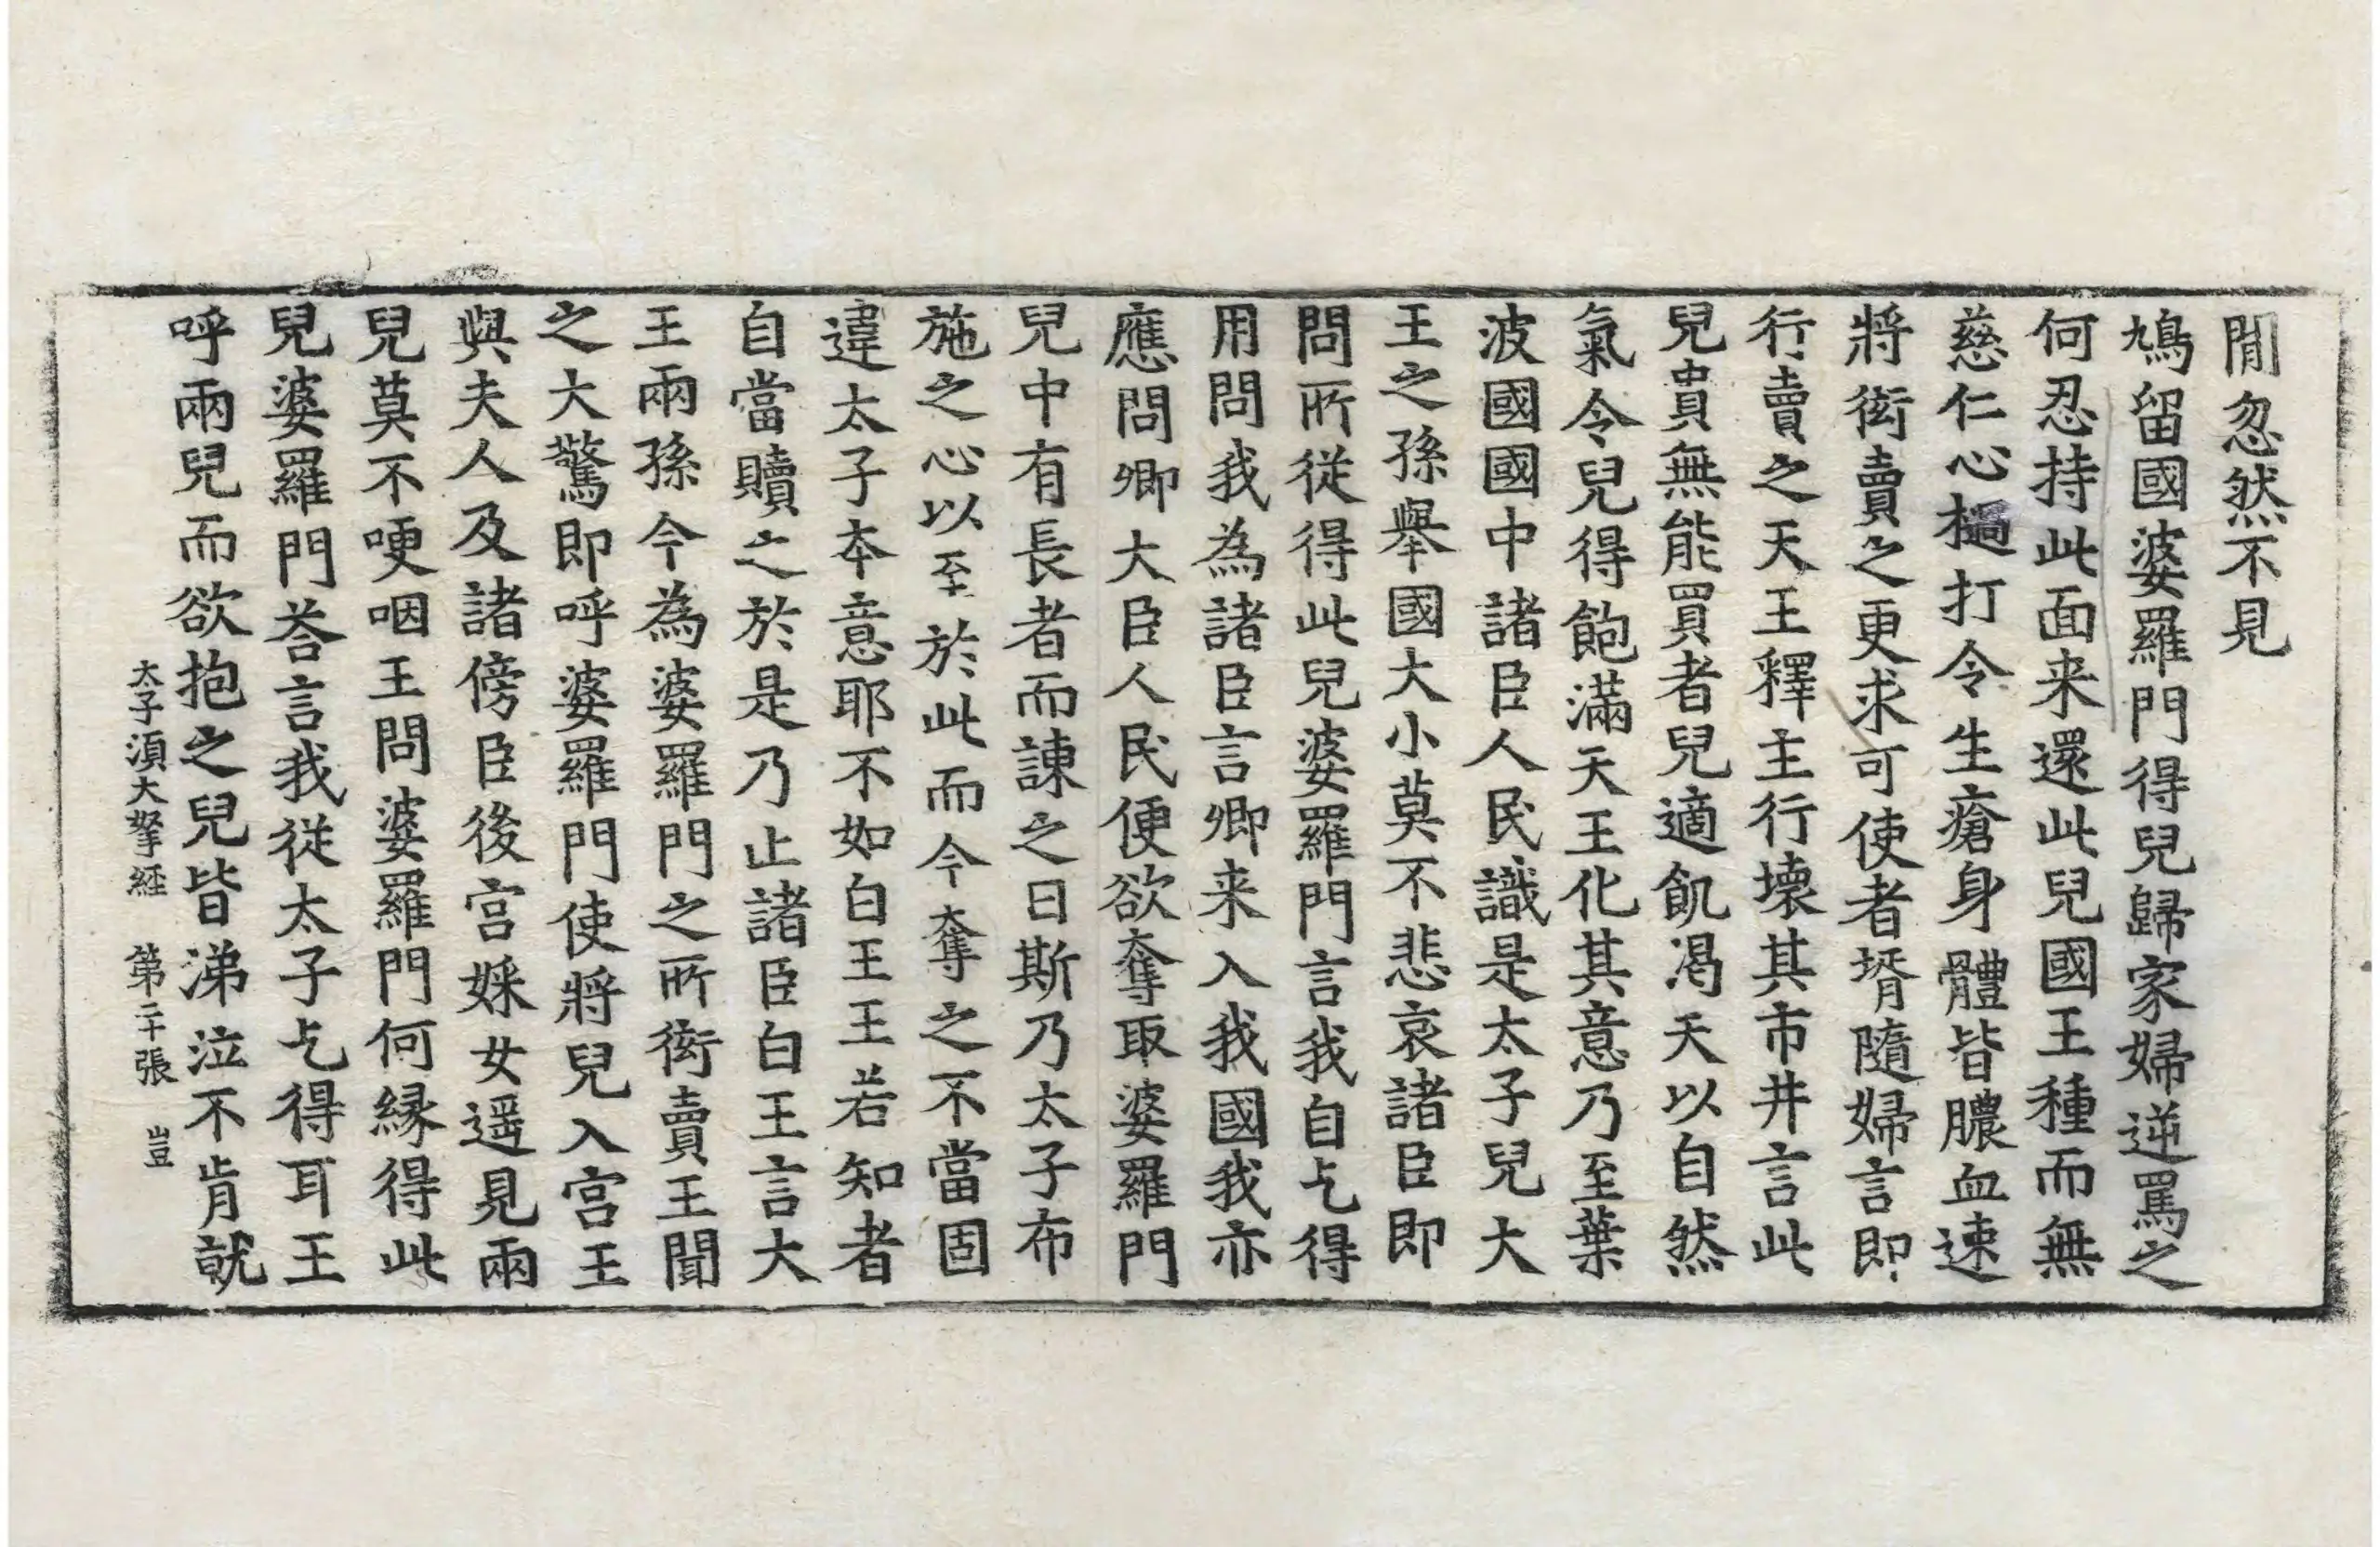 閒忽然不見
鳩留國婆羅門得兒歸家婦逆罵之
何忍持此面来還此兒國王種而無
慈仁心檛打令生瘡身體皆膿血速
將衒賣之更求可使者壻隨婦言即
行賣之天王釋主行壊其市井言此
兒貴無能買者兒適飢渴天以自然
氣令兒得飽滿天王化其意乃至葉
波國國中諸臣人民識是太子兒大
王之孫舉國大小莫不悲哀諸臣即
問所從得此兒婆羅門言我自乞得
用問我為諸臣言卿来入我國我亦
應問卿大臣人民便欲奪取婆羅門
兒中有長者而諫之曰斯乃太子布
施之心以至於此而今奪之不當固
違太子本意耶不如白王王若知者
自當贖之於是乃止諸臣白王言大
王兩孫今為婆羅門之所衒賣王聞
之大驚即呼婆羅門使將兒入宮王
與夫人及諸傍臣後宮婇女遥見兩
兒莫不哽咽王問婆羅門何縁得此
兒婆羅門荅言我從太子乞得耳王
呼兩兒而欲抱之兒皆涕泣不肯就
太子湏大拏經 第二十張 豈